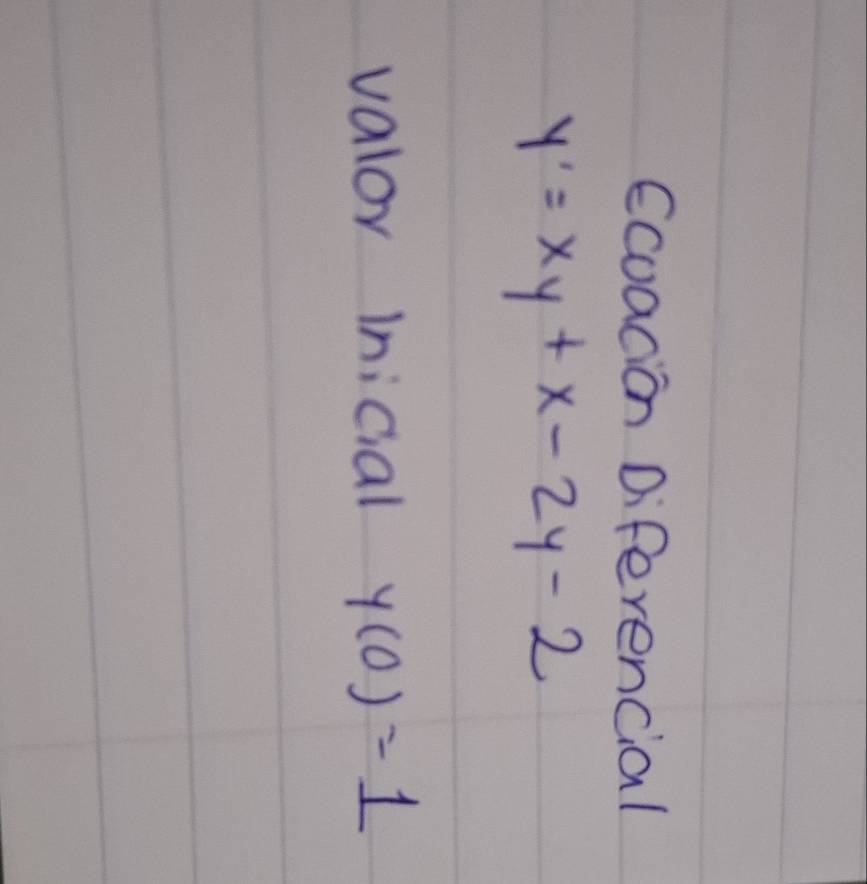 Ecuación Diferencial
y' = xy + x - 2y - 2
Valor Inicial y(0) = 1